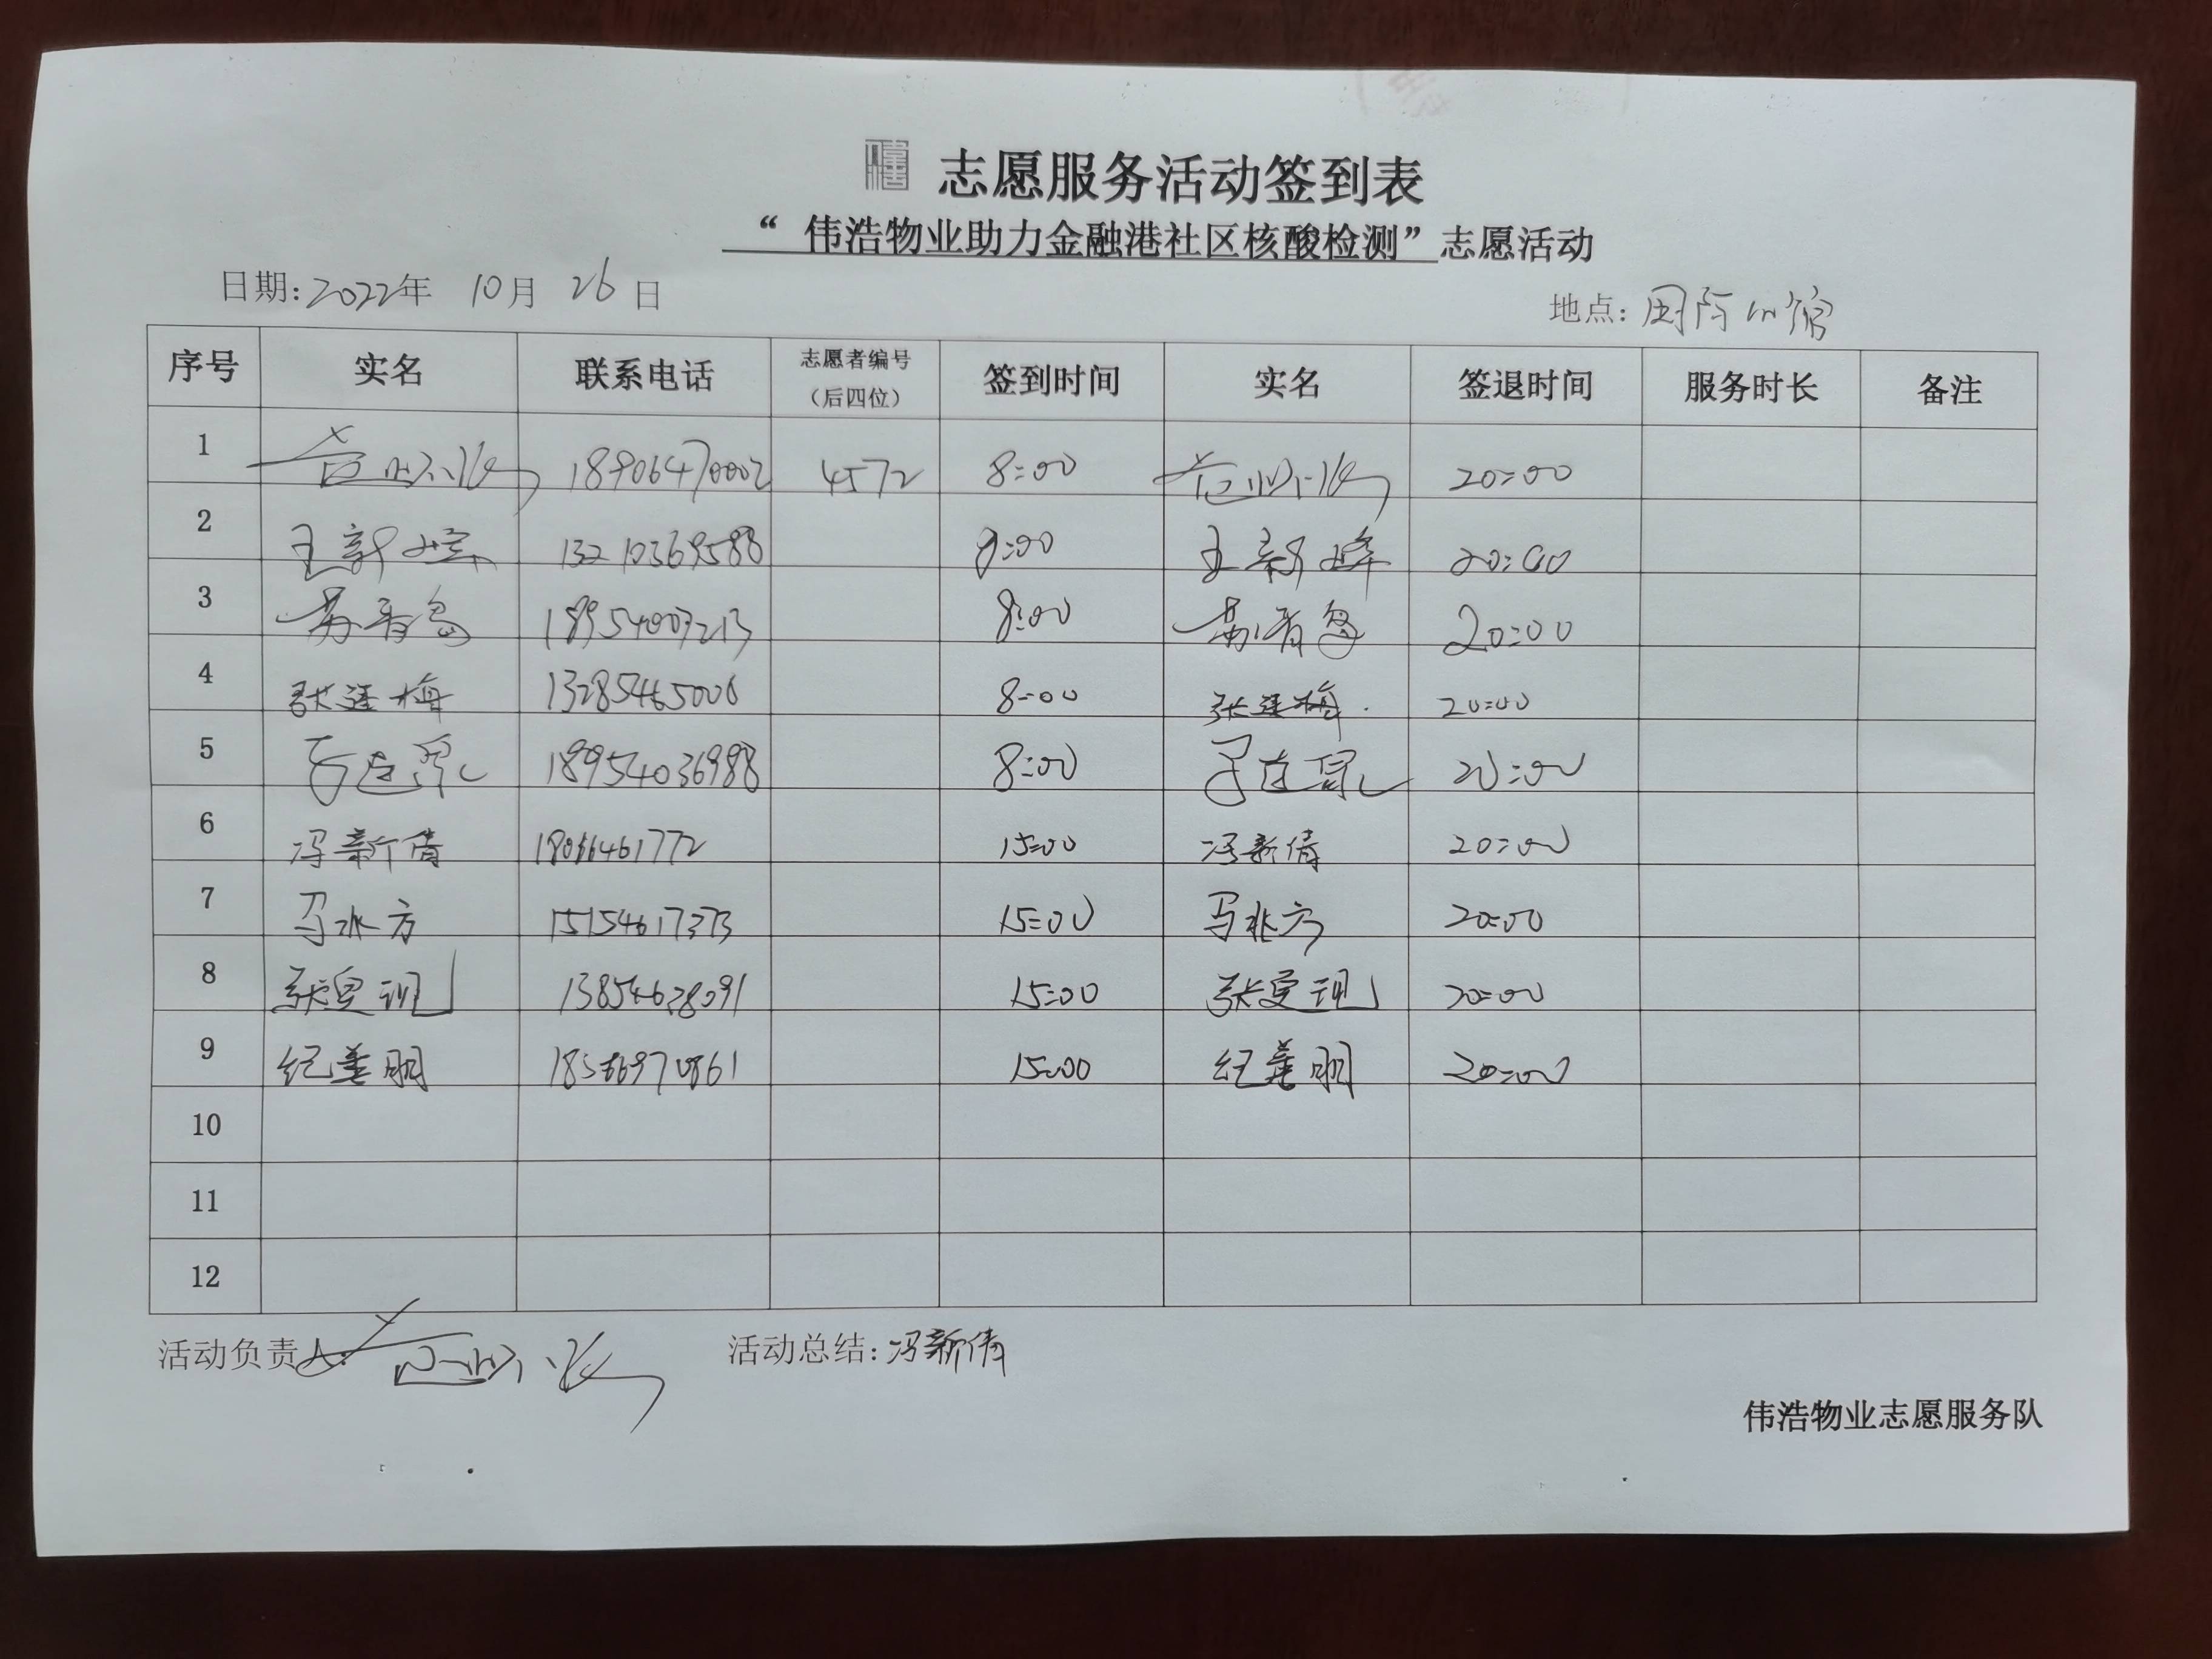 志愿服务活动签到表
“ 伟浩物业助力金融港社区核酸检测”志愿活动
日期: 2022年 10月 26日 地点: 国际公馆
序号 实名 联系电话 志愿者编号（后四位） 签到时间 实名 签退时间 服务时长 备注
1 18906470002 4572 8:00 20:00
2 王新 13210369588 8:00 王新峰 20:00
3 苏青岛 18954007213 8:00 苏青岛 20:00
4 张莲梅 13285465006 8:00 张莲梅 20:00
5 18954036988 8:00 20:00
6 冯新倩 15:00 冯新倩 20:00
7 马兆方 15154617373 15:00 马兆方 20:00
8 张 13854628091 15:00 张 20:00
9 纪美朋 15:00 纪美朋 20:00
10
11
12
活动负责人: 活动总结: 冯新倩
伟浩物业志愿服务队